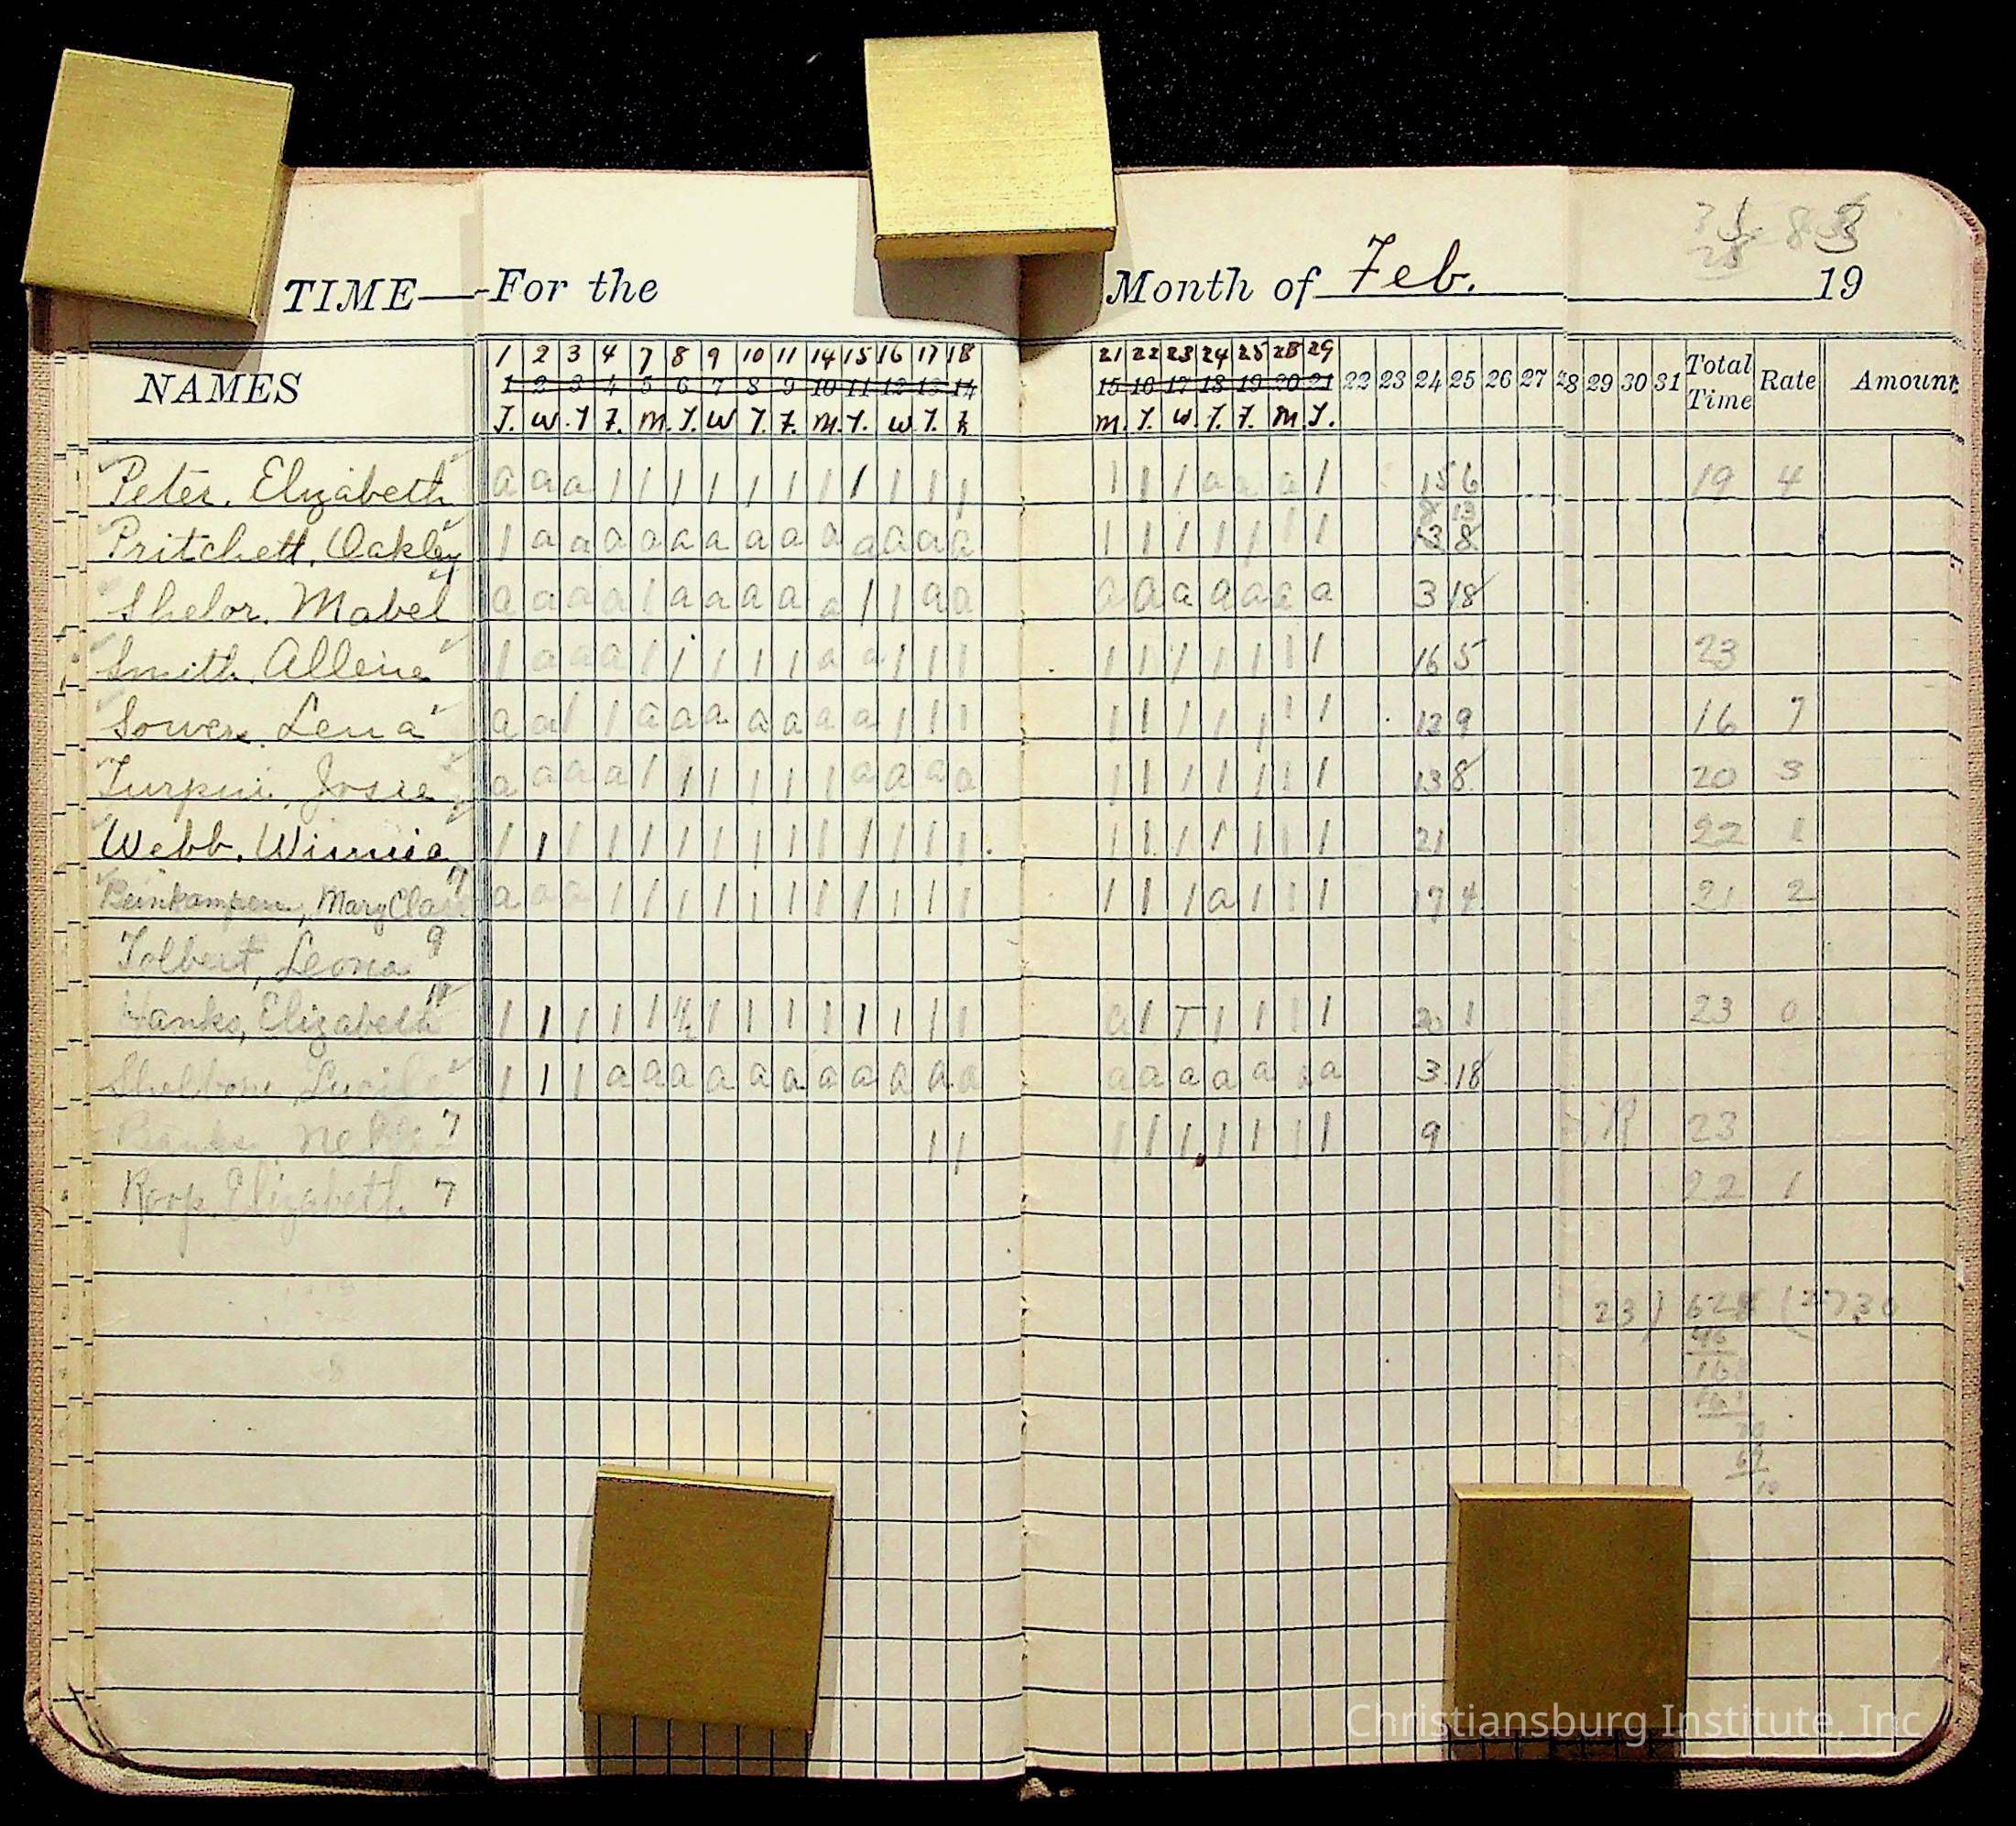 TIME—For the Month of Feb. 19
1 2 3 4 7 8 9 10 11 14 15 16 17 18 21 22 23 24 25 28 29
NAMES 1 2 3 4 5 6 7 8 9 10 11 12 13 14 15 16 17 18 19 20 21 22 23 24 25 26 27 28 29 30 31 Total Time Rate Amount
T. W. T F. M. T. W T. F. M. T. W T. F. M. T. W. T. F. M. T.
Peter, Elizabeth a a a 1 1 1 1 1 1 1 1 1 1 1 1 1 1 a a a 1 15 6 19 4
Pritchett, Oakley 1 a a a a a a a a a a a a a 1 1 1 1 1 1 1 13 8
Shelor, Mabel a a a a 1 a a a a a 1 1 a a a a a a a a a 3 18
Smith, Allene 1 a a a 1 1 1 1 1 a a 1 1 1 1 1 1 1 1 1 1 16 5 23
Sowers, Lena a a 1 1 a a a a a a a 1 1 1 1 1 1 1 1 1 1 12 9 16 7
Turpin, Josie a a a a 1 1 1 1 1 1 a a a a 1 1 1 1 1 1 1 13 8 20 3
Webb, Winnia 1 1 1 1 1 1 1 1 1 1 1 1 1 1 1 1 1 1 1 1 1 21 22 1
MaryCla 7 a a a 1 1 1 1 1 1 1 1 1 1 1 1 1 1 a 1 1 1 17 4 21 2
Tolbert, Leona 9
Hanks, Elizabeth 1 1 1 1 1 ½ 1 1 1 1 1 1 1 1 a 1 T 1 1 1 1 20 1 23 0
Lucile 1 1 1 a a a a a a a a a a a a a a a a a a 3 18
Banks 7 1 1 1 1 1 1 1 1 1 9 23
Roop, Elizabeth 7 22 1
23 ) 628 ( 2730
46
Christiansburg Institute, Inc